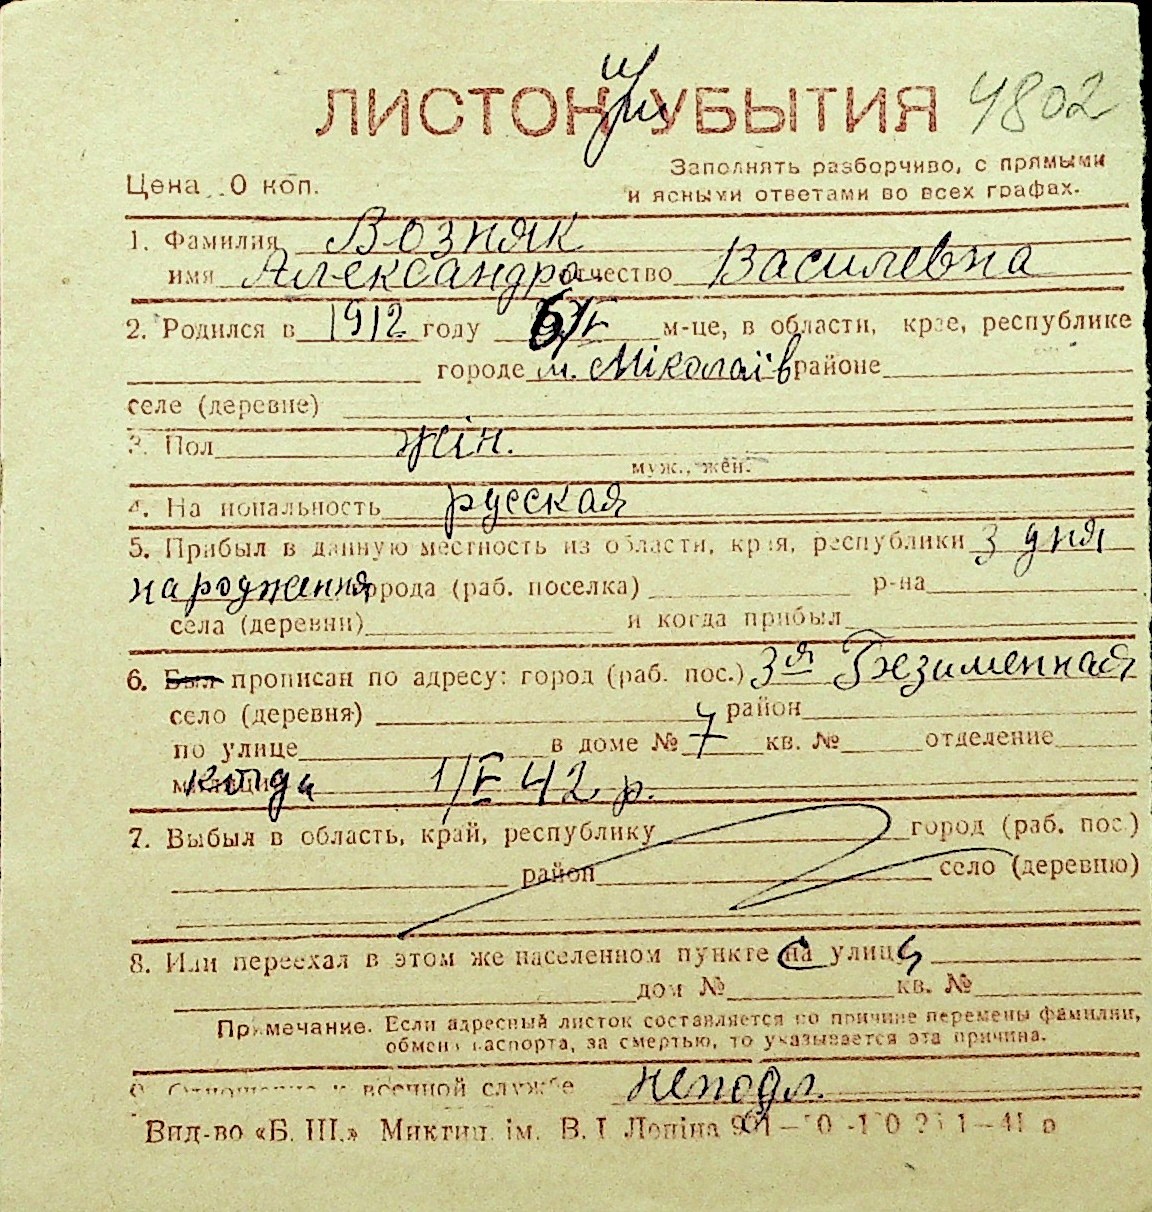 ЛИСТОК УБЫТИЯ 4802
Заполнять разборчиво, с прямыми
Цена 0 коп. и ясными ответами во всех графах.
1. Фамилия Возняк
имя Александра отчество Василевна
2. Родился в 1912 году 6/V м-це, в области, крае, республике
городе м. Міколаїв районе
селе (деревне)
3. Пол жін.
муж., жен.
4. Национальность русская
5. Прибыл в данную местность из области, края, республики З дня
народження города (раб. поселка) р-на
села (деревни) и когда прибыл
6. Был прописан по адресу: город (раб. пос.) 3я Безименная
село (деревня) район
по улице в доме № 4 кв. № отделение
милиции когда 1/V 42 р.
7. Выбыл в область, край, республику город (раб. пос.)
район село (деревню)
8. Или переехал в этом же населенном пункте на улицу
дом № кв. №
Примечание. Если адресный листок составляется по причине перемены фамилии,
обмена паспорта, за смертью, то указывается эта причина.
9. Отношение к военной службе неподл.
Вид-во «Б. Ш.» Миктип. ім. В. І Леніна